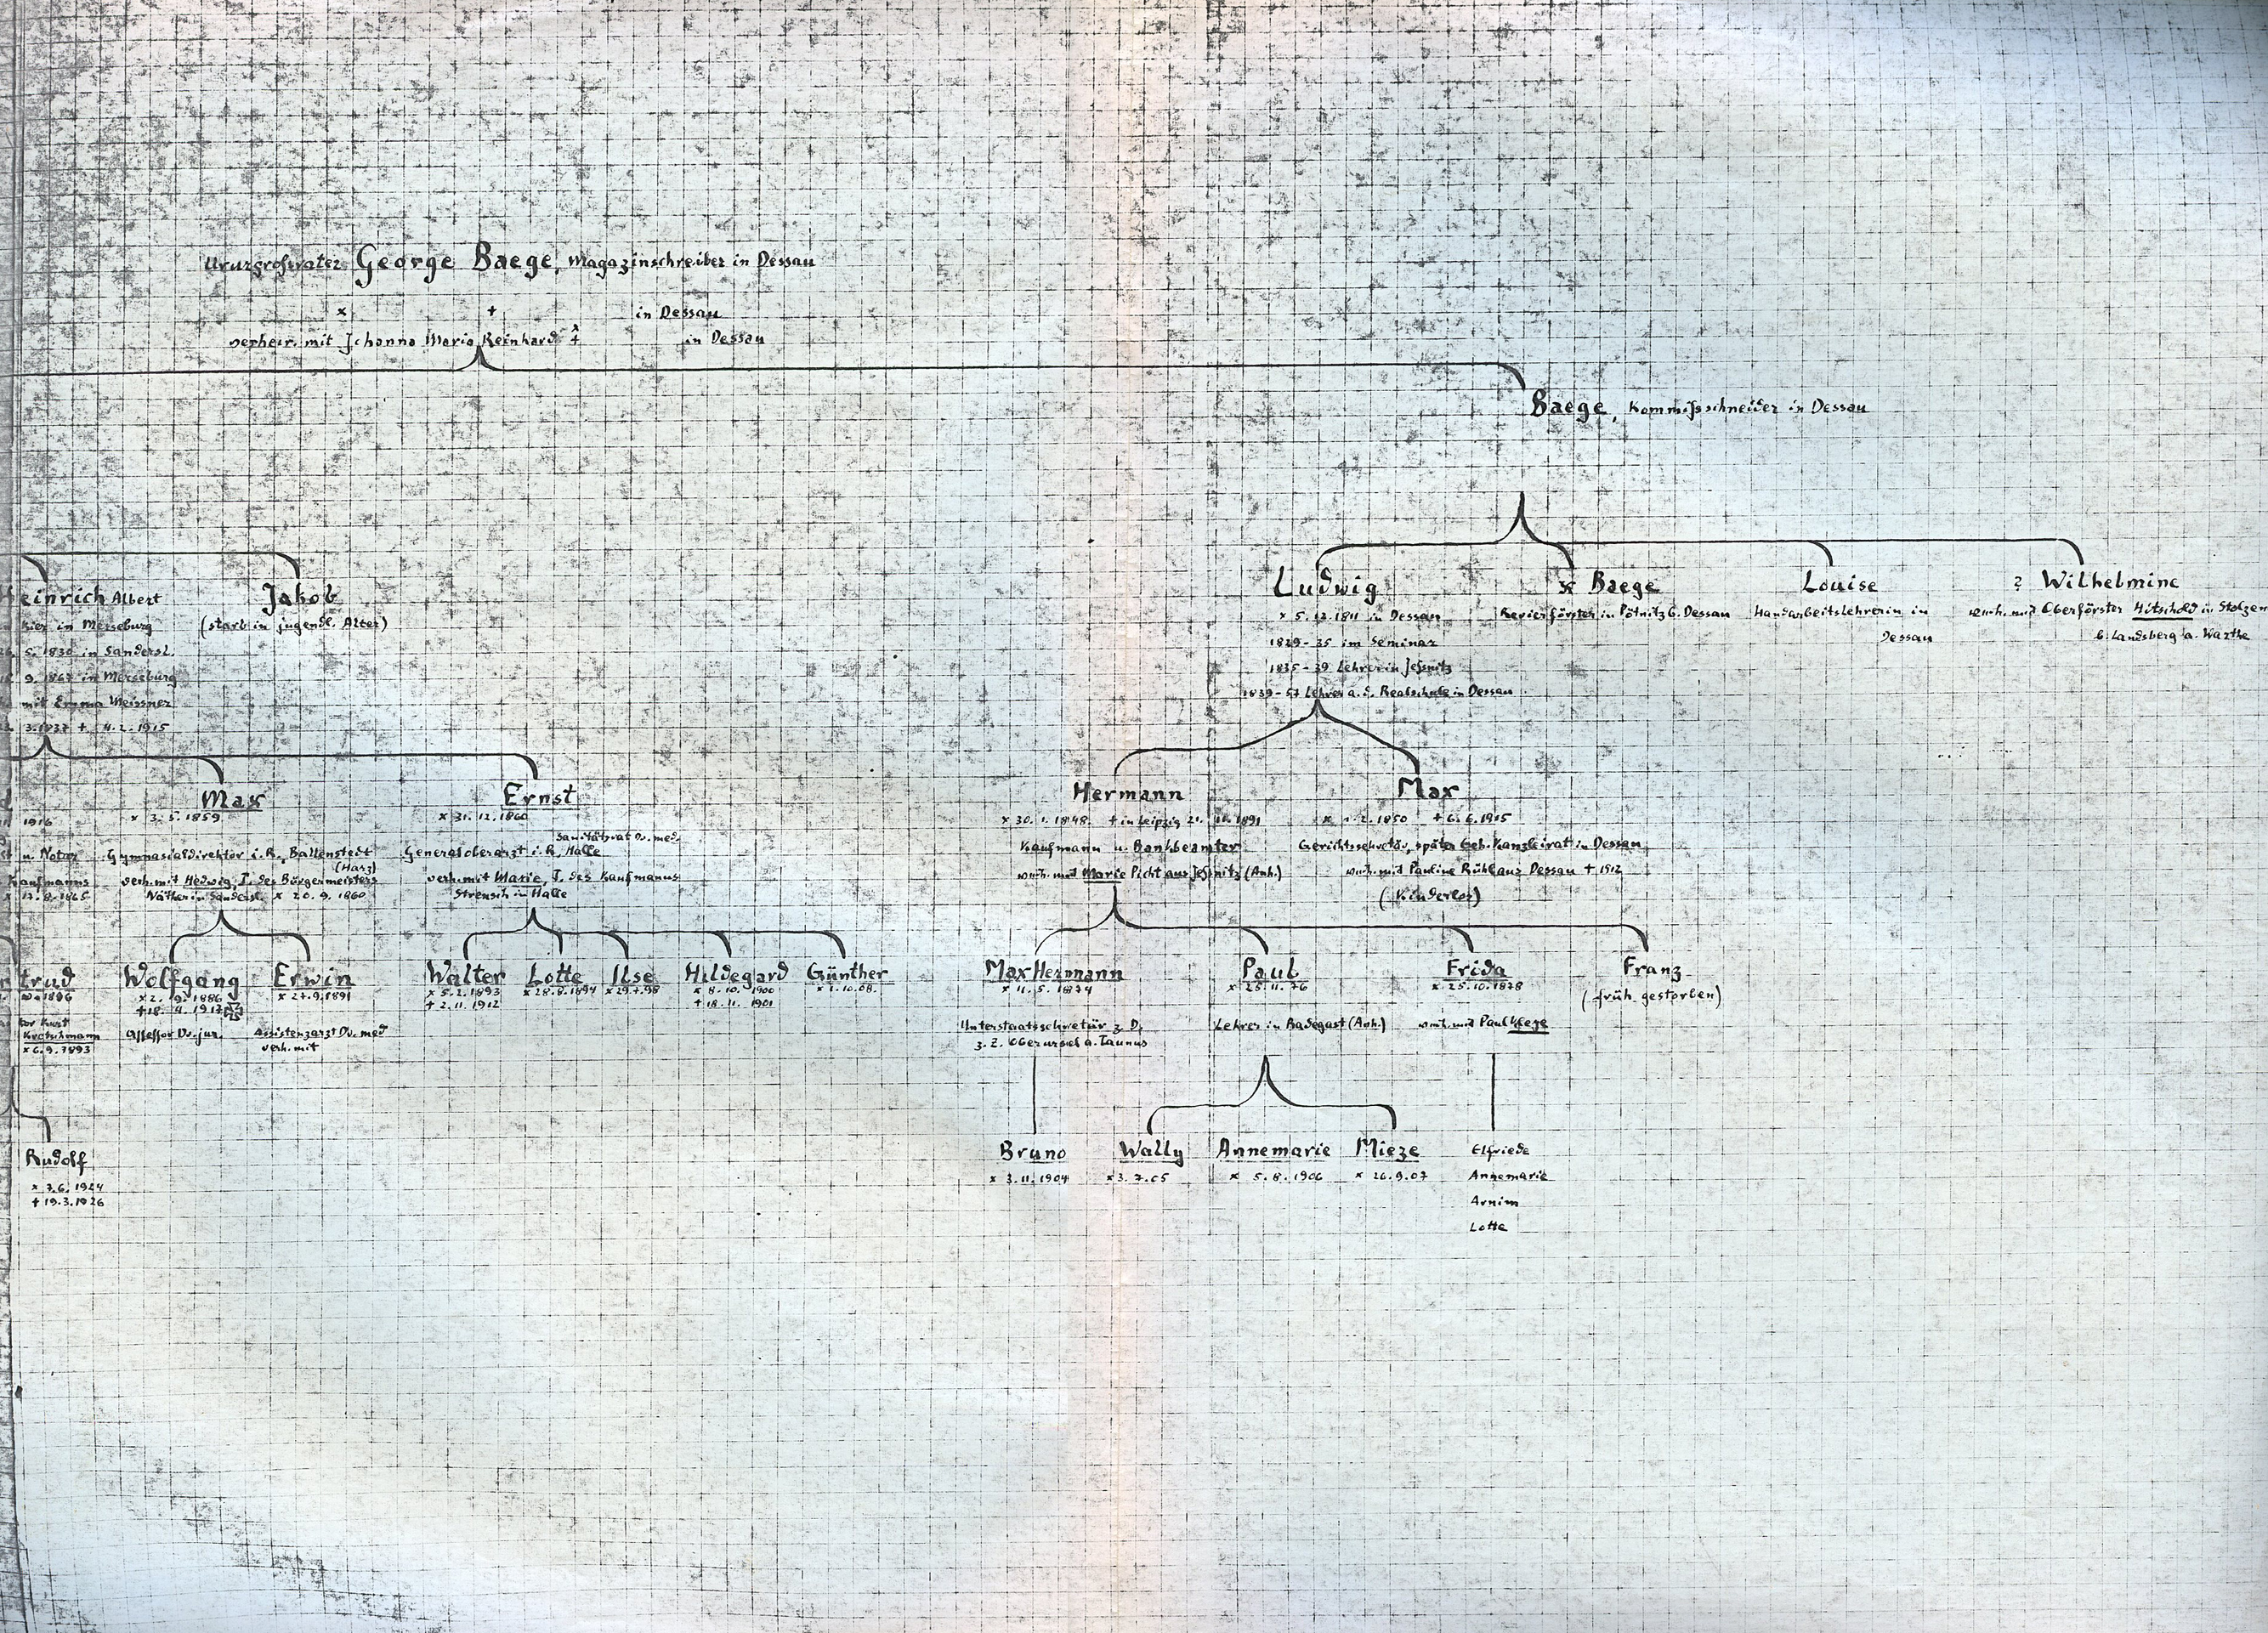 Ururgroßvater George Baege, Magazinschreiber in Dessau
x + in Dessau
verheir. mit Johanna Maria Reinhard x + in Dessau
Baege, Kommißschneider in Dessau
einrich Albert
kier in Merseburg
5. 1830 in Sandersl.
9. 1867 in Merseburg
mit Emma Meissner
3. 1837 + 4.2.1915
Jakob
(starb in jugendl. Alter)
Ludwig
x 5.12.1811 in Dessau
1829-35 im Seminar
1835-39 Lehrer in Jeßnitz
1839-57 Lehrer a.d. Realschule in Dessau
x Baege
Revierförster in Pötnitz b. Dessau
Louise
Handarbeitslehrerin in
Dessau
? Wilhelmine
verh. mit Oberförster Hitschold in Stolzen
b. Landsberg a. Warthe
1916
u. Notar
Kaufmanns
x 17.8.1865
Max
x 3.5.1859
Gymnasialdirektor i.R., Ballenstedt
(Harz)
verh. mit Hedwig, T. des Bürgermeisters
Näther in Sandersl. x 20.9.1860
Ernst
x 31.12.1860
Sanitätsrat Dr. med.
Generaloberarzt i.R., Halle
verh. mit Marie, T. des Kaufmanns
Strensch in Halle
Hermann
x 30.1.1848. + in Leipzig 21. 1891
Kaufmann u. Bankbeamter
verh. mit Marie Picht aus Jeßnitz (Anh.)
Max
x 2.1850 + 6.6.1915
Gerichtssekretär, später Geh. Kanzleirat in Dessau
verh. mit Pauline Rühl aus Dessau + 1912
(Kinderlos)
trud
1896
tor Kurt
Kretschmann
x 6.9.1893
Wolfgang
x 2.9.1886
+ 18.4.1917
Assessor Dr. jur.
Erwin
x 27.9.1891
Assistenzarzt Dr. med
verh. mit
Walter
x 5.2.1893
+ 2.11.1912
Lotte
x 28.8.1894
Ilse
x 29.7.98
Hildegard
x 8.10.1900
+ 18.11.1901
Günther
x 1.10.08.
Max Hermann
x 11.5.1874
Unterstaatssekretär z.D.
z.Z. Oberursel a. Taunus
Paul
x 25.11.76
Lehrer in Radegast (Anh.)
Frida
x 25.10.1878
verh. mit Paul
Franz
(früh. gestorben)
Rudolf
x 7.6.1924
+ 19.3.1926
Bruno
x 3.11.1904
Wally
x 3.7.05
Annemarie
x 5.8.1906
Mieze
x 26.9.07
Elfriede
Annemarie
Arnim
Lotte